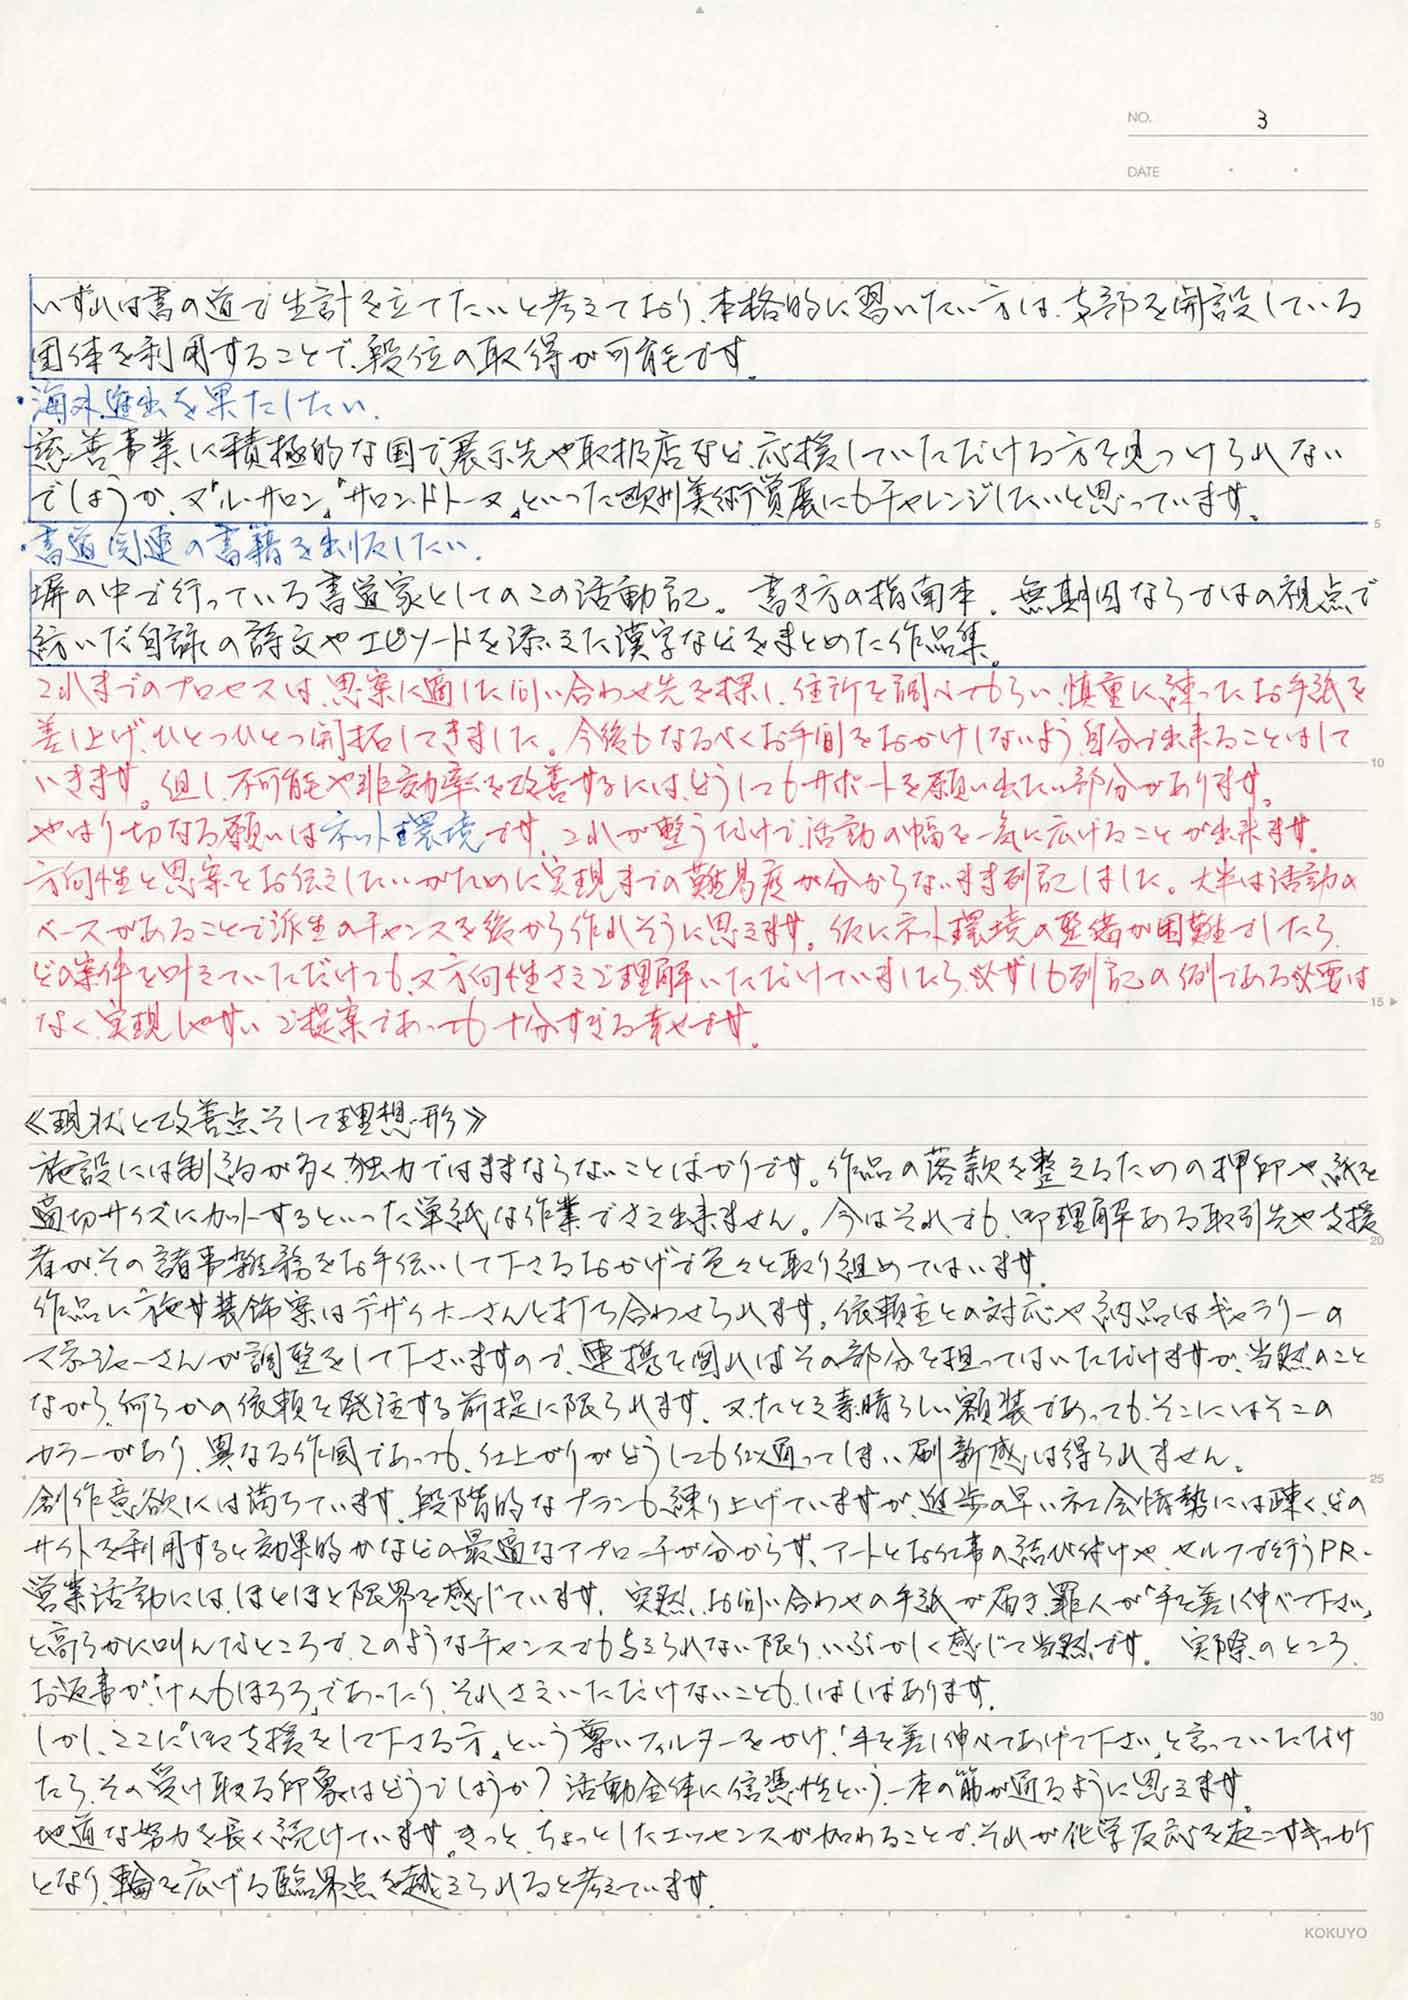 NO. 3
DATE
いずれは書の道で生計を立てたいと考えており、本格的に習いたい方は、支部を開設している
団体を利用することで、段位の取得が可能です。
・海外進出を果たしたい。
慈善事業に積極的な国で、展示先や取扱店など、応援していただける方を見つけられない
でしょうか。又『ル・サロン』『サロン・ドトーヌ』といった欧州美術賞展にもチャレンジしたいと思っています。
5
・書道関連の書籍を出版したい。
塀の中で行っている書道家としてのこの活動記。書き方の指南本。無期囚ならではの視点で
紡いだ自詠の詩文やエピソードを添えた漢字などをまとめた作品集。
これまでのプロセスは、思案に適した問い合わせ先を探し、住所を調べてもらい、慎重に練ったお手紙を
差し上げ、ひとつひとつ開拓してきました。今後もなるべくお手間をおかけしないよう、自分で出来ることはして
いきます。但し、不可能や非効率を改善するには、どうしてもサポートを願い出たい部分があります。
10
やはり切なる願いはネット環境です。これが整うだけで、活動の幅を一気に広げることが出来ます。
方向性と思案をお伝えしたいがために実現までの難易度が分からないまま列記しました。大半は活動の
ベースがあることで派生のチャンスを後から作れそうに思えます。仮にネット環境の整備が困難でしたら、
どの案件を叶えていただけても、又方向性さえご理解いただけていましたら、必ずしも列記の例である必要は
なく、実現しやすいご提案であっても十分すぎる幸せです。
15
≪現状と改善点そして理想形≫
施設には制約が多く、独力ではままならないことばかりです。作品の落款を整えるための押印や、紙を
適切サイズにカットするといった単純な作業でさえ出来ません。今はそれでも、御理解ある取引先や支援
者が、その諸事雑務をお手伝いして下さるおかげで色々と取り組めてはいます。
20
作品に施す装飾案はデザイナーさんと打ち合わせられます。依頼主との対応や納品はギャラリーの
マネージャーさんが調整をして下さいますので、連携を図ればその部分を担ってはいただけますが、当然のこと
ながら、何らかの依頼を発注する前提に限られます。又、たとえ素晴らしい額装であっても、そこにはそこの
カラーがあり、異なる作風であっても、仕上がりがどうしても似通ってしまい刷新感は得られません。
創作意欲には満ちています。段階的なプランも練り上げていますが、進歩の早い社会情勢には疎く、どの
25
サイトを利用すると効果的かなどの最適なアプローチが分からず、アートとお仕事の結び付けや、セルフで行うPR・
営業活動には、ほとほと限界を感じています。突然、お問い合わせの手紙が届き、罪人が「手を差し伸べて下さい」
と高らかに叫んだところで、このようなチャンスでも与えられない限り、いぶかしく感じて当然です。実際のところ、
お返事が「けんもほろろ」であったり、それさえいただけないことも、しばしばあります。
しかし、ここに『御支援をして下さる方』という尊いフィルターをかけ、「手を差し伸べてあげて下さい」と言っていただけ
30
たら、その受け取る印象はどうでしょうか？活動全体に信憑性という、一本の筋が通るように思えます。
地道な努力を長く続けています。きっと、ちょっとしたエッセンスが加わることで、それが化学反応を起こすキッカケ
となり、輪を広げる臨界点を越えられると考えています。
KOKUYO